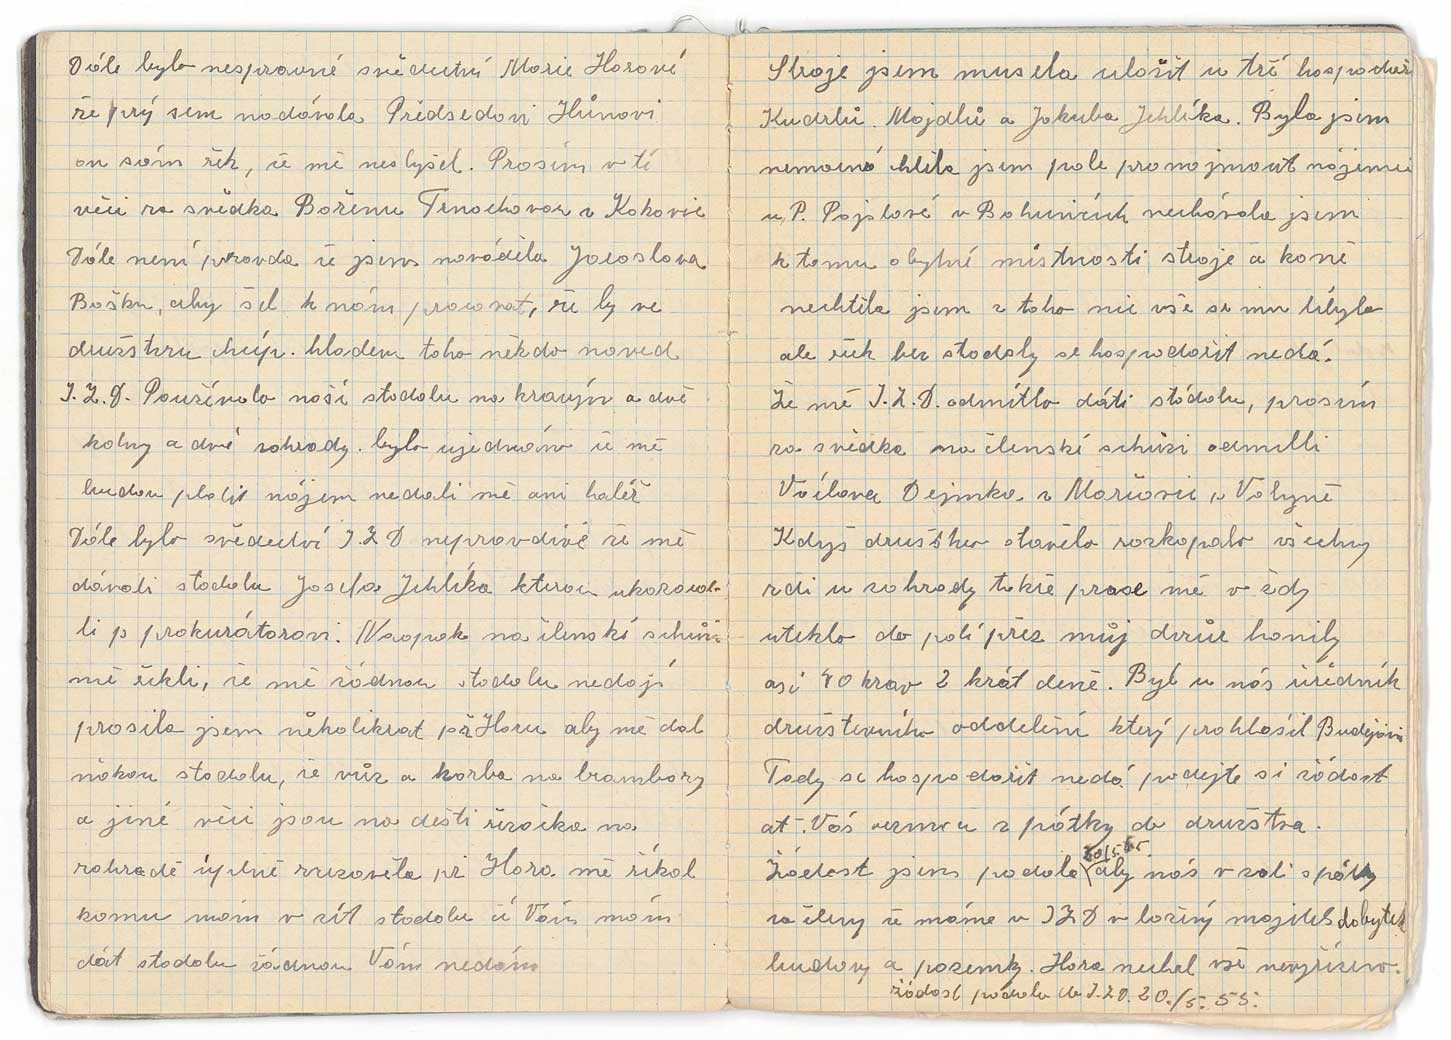 Dále bylo nesprávné svědectví Marie Horové
že prý sem nadávala Předsedovi Hůnovi
on sám řek, že mě neslyšel. Prosím v té
věci za svědka Boženu Trnochovou z Kakovic
Dále není pravda že jsem naváděla Jaroslava
Bošku, aby šel k nám pracovat, že by ve
družstvu chcíp. hladem toho někdo naved
J.Z.D. Používalo naší stodolu na kravín a dvě
kolny a dvě zahrady. bylo ujednáno že mě
budou platit nájem nedali mě ani haléř
Dále bylo svědectví J.Z.D nepravdivé že mě
dávali stodolu Josefa Jehlíka kterou ukazova-
li p prokurátorovi. Naopak na členské schůzi
mě řekli, že mě žádnou stodolu nedají
prosila jsem několikrat př Horu aby mě dal
nákou stodolu, že vůz a korba na brambory
a jiné věci jsou na dešti řezačka na
zahradě úplně zrezavěla př Hora mě říkal
komu mám vzít stodolu čí Vám mám
dát stodolu žádnou Vám nedám
Stroje jsem musela uložit u tří hospodář
Kudrlů. Mojdlů a Jakuba Jehlíka. Byla jsem
nemocná chtěla jsem pole pronajmout nájemci
u P. Pajslové v Bohunicích nechávala jsem
k tomu obytné místnosti stroje a koně
nechtěla jsem z toho nic vše se mu líbylo
ale řek bez stodoly se hospodařit nedá.
Že mě J.Z.D. odmítlo dáti stodolu, prosím
za svědka na členské schůzi odmítli
Václava Dejmka z Marčovic p Volyně
Když družstvo stavělo rozkopalo všechny
zdi u zahrady takže prase mě v ždy
uteklo do polí přez můj dvůr honily
asi 40 krav 2 krát deně. Byl u nás úředník
družstevního oddělení který prohlásil Budějovi
Tady se hospodařit nedá podejte si žádost
ať. Vás vezmou z pátky do družstva.
Žádost jsem podala 20/5. 55. aby nás vzali spátky
za členy že máme v JZD vložený majetek dobytek
budovy a pozemky. Hora nechal vše nevyřízeno.
žádost podala do J.ZD. 20./5. 55.